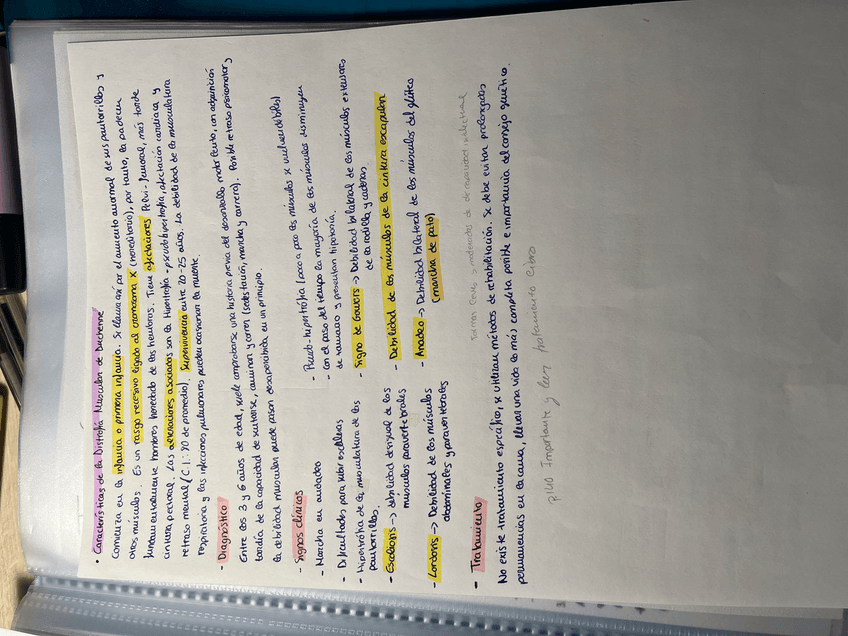 • Características de la Distrofia Muscular de Duchenne
Comienza en la infancia o primera infancia. Se llama así por el aumento anormal de sus pantorrillas y
otros músculos. Es un rasgo recesivo ligado al cromosoma X (hereditario), por tanto, la padecen
fundamentalmente hombres heredado de las hembras. Tiene afectaciones Pelvi-femoral, más tarde
cintura pectoral. Las alteraciones asociadas son la hipertrofia - pseudohipertrofia, afectación cardiaca y
retraso mental (C.I.: 70 de promedio). Supervivencia entre 20-25 años. La debilidad de la musculatura
respiratoria y las infecciones pulmonares pueden ocasionar la muerte.
- Diagnóstico
Entre los 3 y 6 años de edad, suele comprobarse una historia previa del desarrollo motor lento, con adquisición
tardía de la capacidad de sentarse, caminar y correr (sedestación, marcha y carrera). Posible retraso psicomotor y
la debilidad muscular puede pasar desapercibida en un principio.
- Signos clínicos
- Marcha en anadeo
- Dificultades para subir escaleras
- Hipertrofia de la musculatura de las
pantorrillas.
- Escoliosis → debilidad desigual de los
músculos paravertebrales
- Lordosis → Debilidad de los músculos
abdominales y paravertebrales
- Pseudo-hipertrofia (poco a poco los músculos se vuelven débiles)
- Con el paso del tiempo la mayoría de los músculos disminuyen
de tamaño y presentan hipotonía.
- Signo de Gowers → Debilidad bilateral de los músculos extensores
de la rodilla y caderas.
- Debilidad de los músculos de la cintura escapular
- Anadeo → Debilidad bilateral de los músculos del glúteo
(marcha de pato)
formas leves y moderadas de discapacidad intelectual
- Tratamiento
No existe tratamiento específico, se utilizan métodos de rehabilitación. Se debe evitar prolongadas
permanencias en la cama, llevar una vida lo más completa posible e importancia del consejo genético.
Importante y leer tratamiento libro